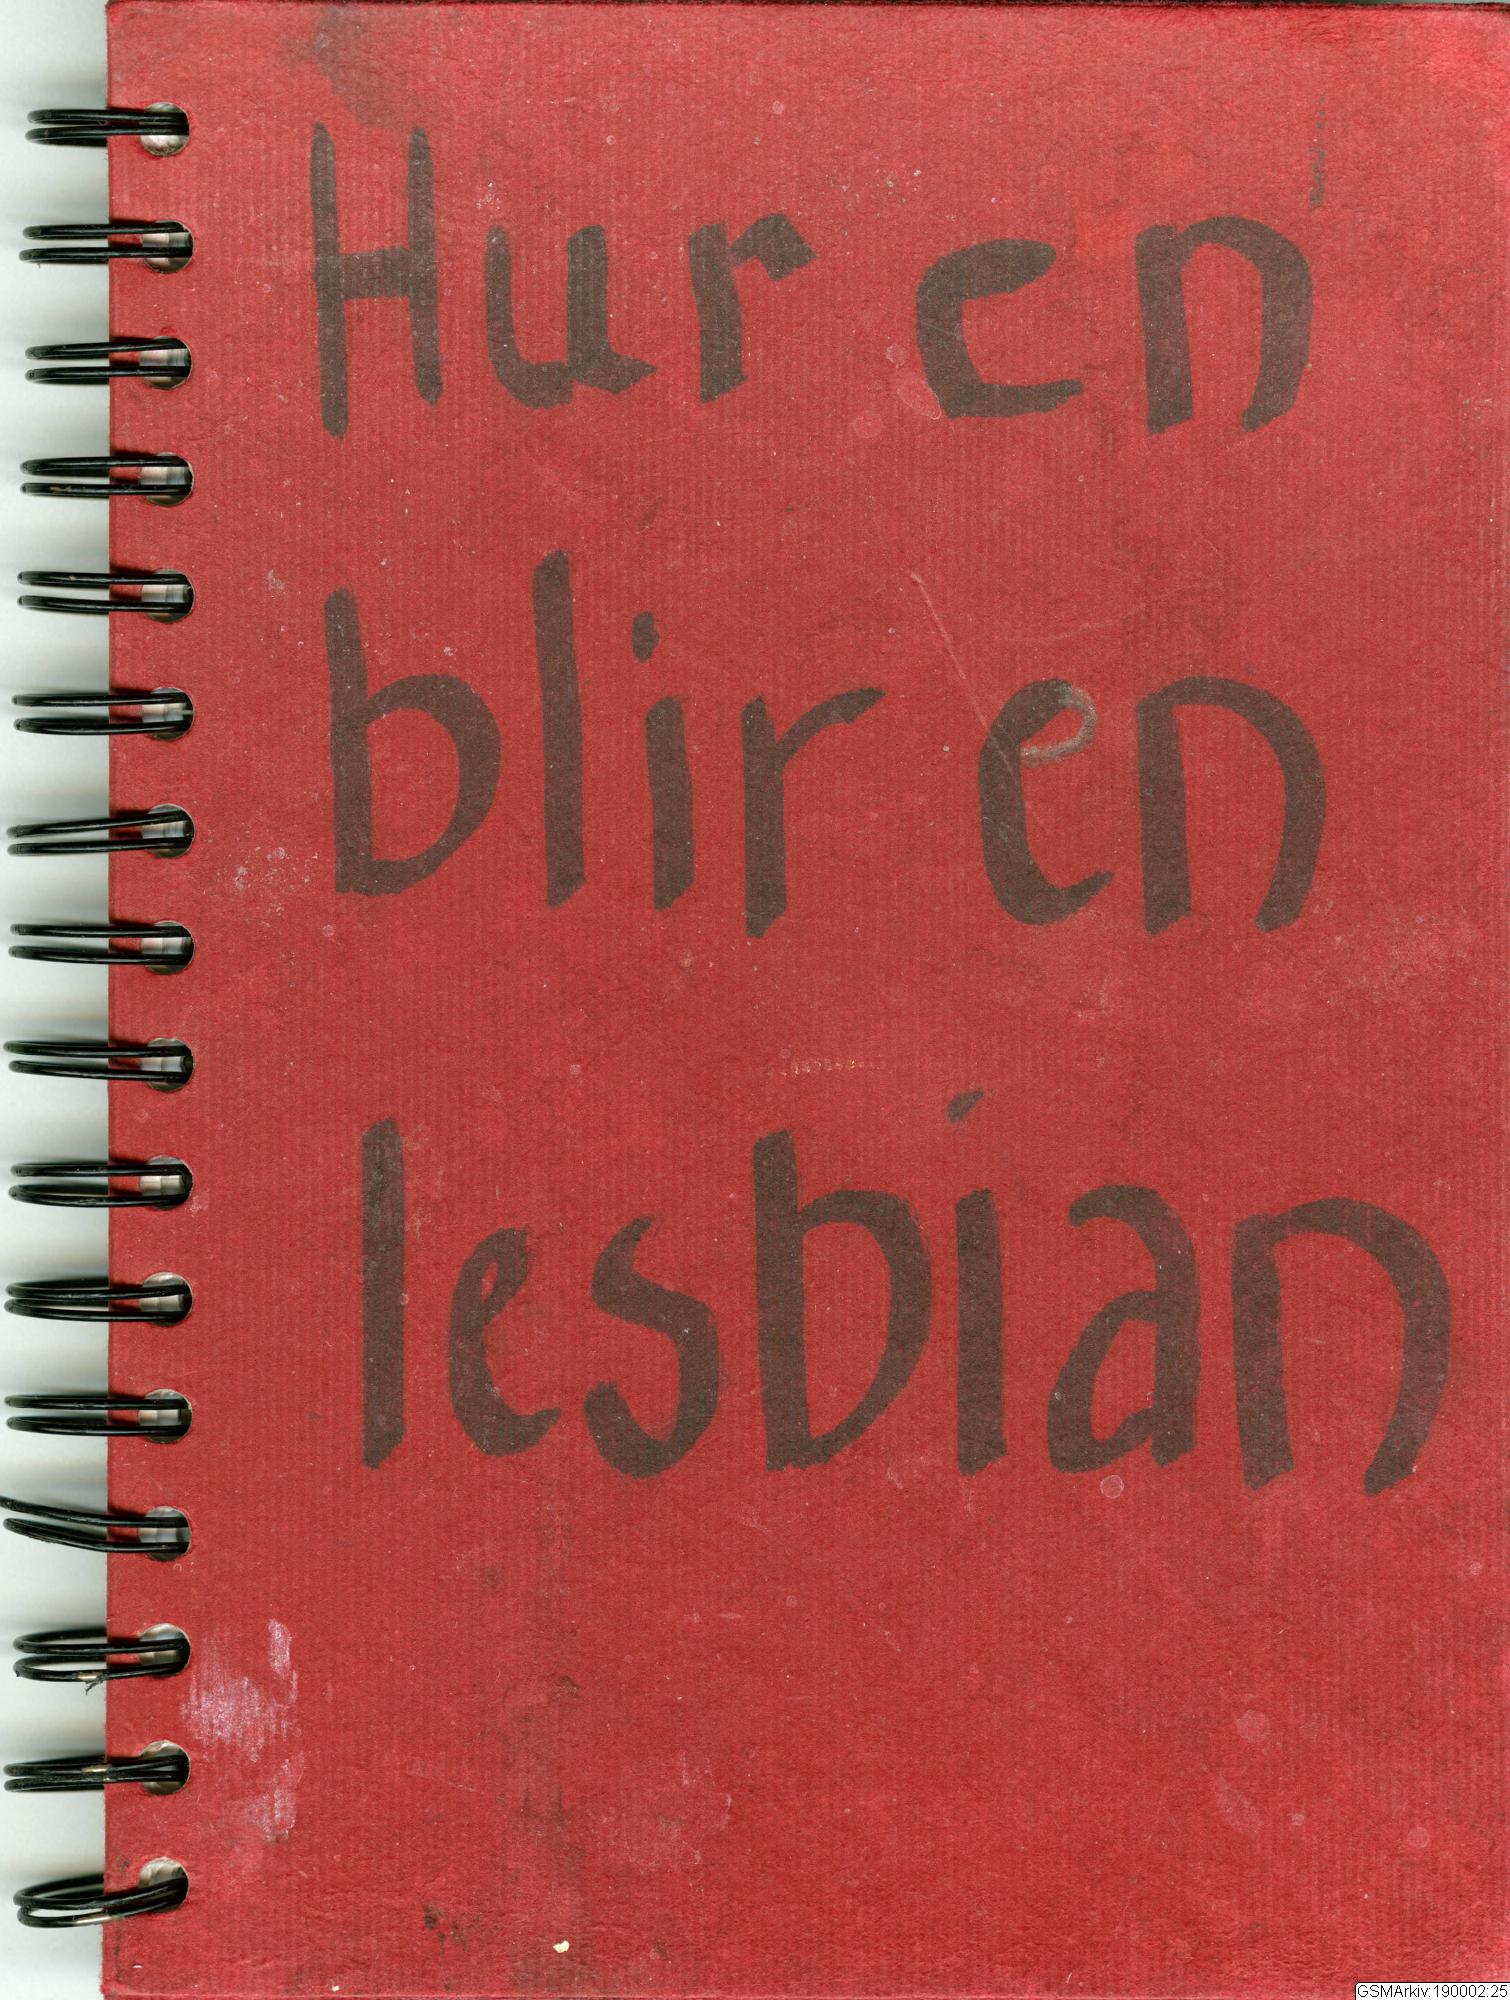 Hur en
blir en
lesbian
GSMArkiv:190002:25